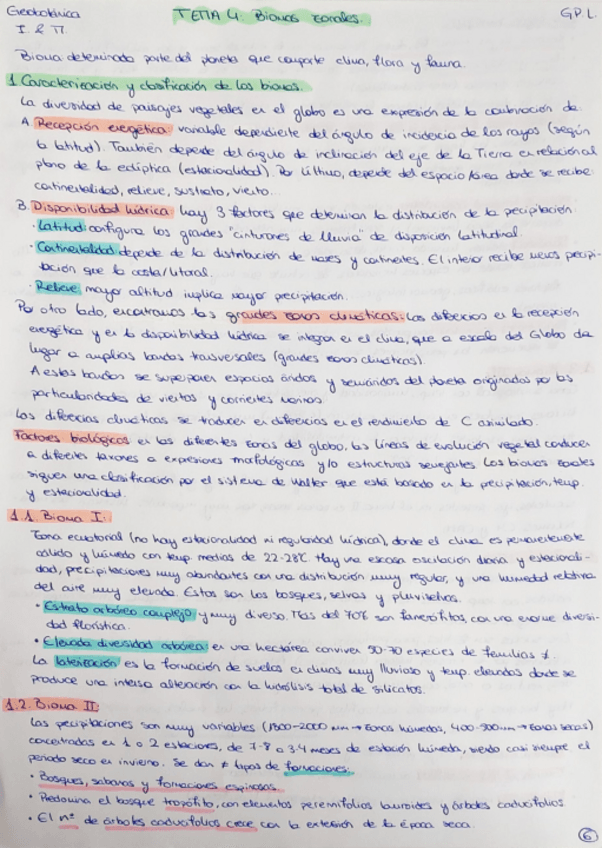 Geobotánica
TEMA 4: Biomas zonales.
G.P.L.
I & II.
Bioma: determinada parte del planeta que comparte clima, flora y fauna.
1 Caracterización y clasificación de los biomas.
La diversidad de paisajes vegetales en el globo es una expresión de la combinación de:
A. Recepción energética: variable dependiente del ángulo de incidencia de los rayos (según
la latitud). También depende del ángulo de inclinación del eje de la Tierra en relación al
plano de la eclíptica (estacionalidad). Por último, depende del espacio/área donde se recibe:
continentalidad, relieve, sustrato, viento...
B. Disponibilidad hídrica: hay 3 factores que determinan la distribución de la precipitación:
· Latitud: configura los grandes "cinturones de lluvia" de disposición latitudinal.
· Continentalidad: depende de la distribución de mares y continentes. El interior recibe menos precipi-
tación que la costa/litoral.
· Relieve: mayor altitud implica mayor precipitación.
Por otro lado, encontramos las grandes zonas climáticas: Las diferencias en la recepción
energética y en la disponibilidad hídrica se integran en el clima, que a escala del Globo da
lugar a amplias bandas transversales (grandes zonas climáticas).
A estas bandas se superponen espacios áridos y semiáridos del planeta originados por las
particularidades de vientos y corrientes marinas.
Las diferencias climáticas se traducen en diferencias en el rendimiento de C asimilado.
Factores biológicos: en las diferentes zonas del globo, las líneas de evolución vegetal conducen
a diferentes taxones a expresiones morfológicas y/o estructuras semejantes. Los biomas zonales
siguen una clasificación por el sistema de Walter que está basado en la precipitación, temp.
y estacionalidad.
1.1. Bioma I:
Zona ecuatorial (no hay estacionalidad ni regularidad hídrica), donde el clima es permanentemente
cálido y húmedo con temp. medias de 22-28°C. Hay una escasa oscilación diaria y estacionali-
dad, precipitaciones muy abundantes con una distribución muy regular, y una humedad relativa
del aire muy elevada. Estos son los bosques, selvas y pluvisilvas.
· Estrato arbóreo complejo y muy diverso. Más del 70% son fanerófitos, con una enorme diversi-
dad florística.
· Elevada diversidad arbórea: en una hectárea conviven 50-70 especies de familias ≠.
La laterización es la formación de suelos en climas muy lluvioso y temp. elevadas donde se
produce una intensa alteración con la hidrólisis total de silicatos.
1.2. Bioma II:
Las precipitaciones son muy variables (1500-2000 mm → zonas húmedas, 400-500mm → zonas secas)
concentradas en 1 o 2 estaciones, de 7-8 o 3-4 meses de estación húmeda, siendo casi siempre el
periodo seco en invierno. Se dan ≠ tipos de formaciones:
· Bosques, sabanas y formaciones espinosas.
· Predomina el bosque tropófito, con elementos perennifolios lauroides y árboles caducifolios.
· El nº de árboles caducifolios crece con la extensión de la época seca.
6